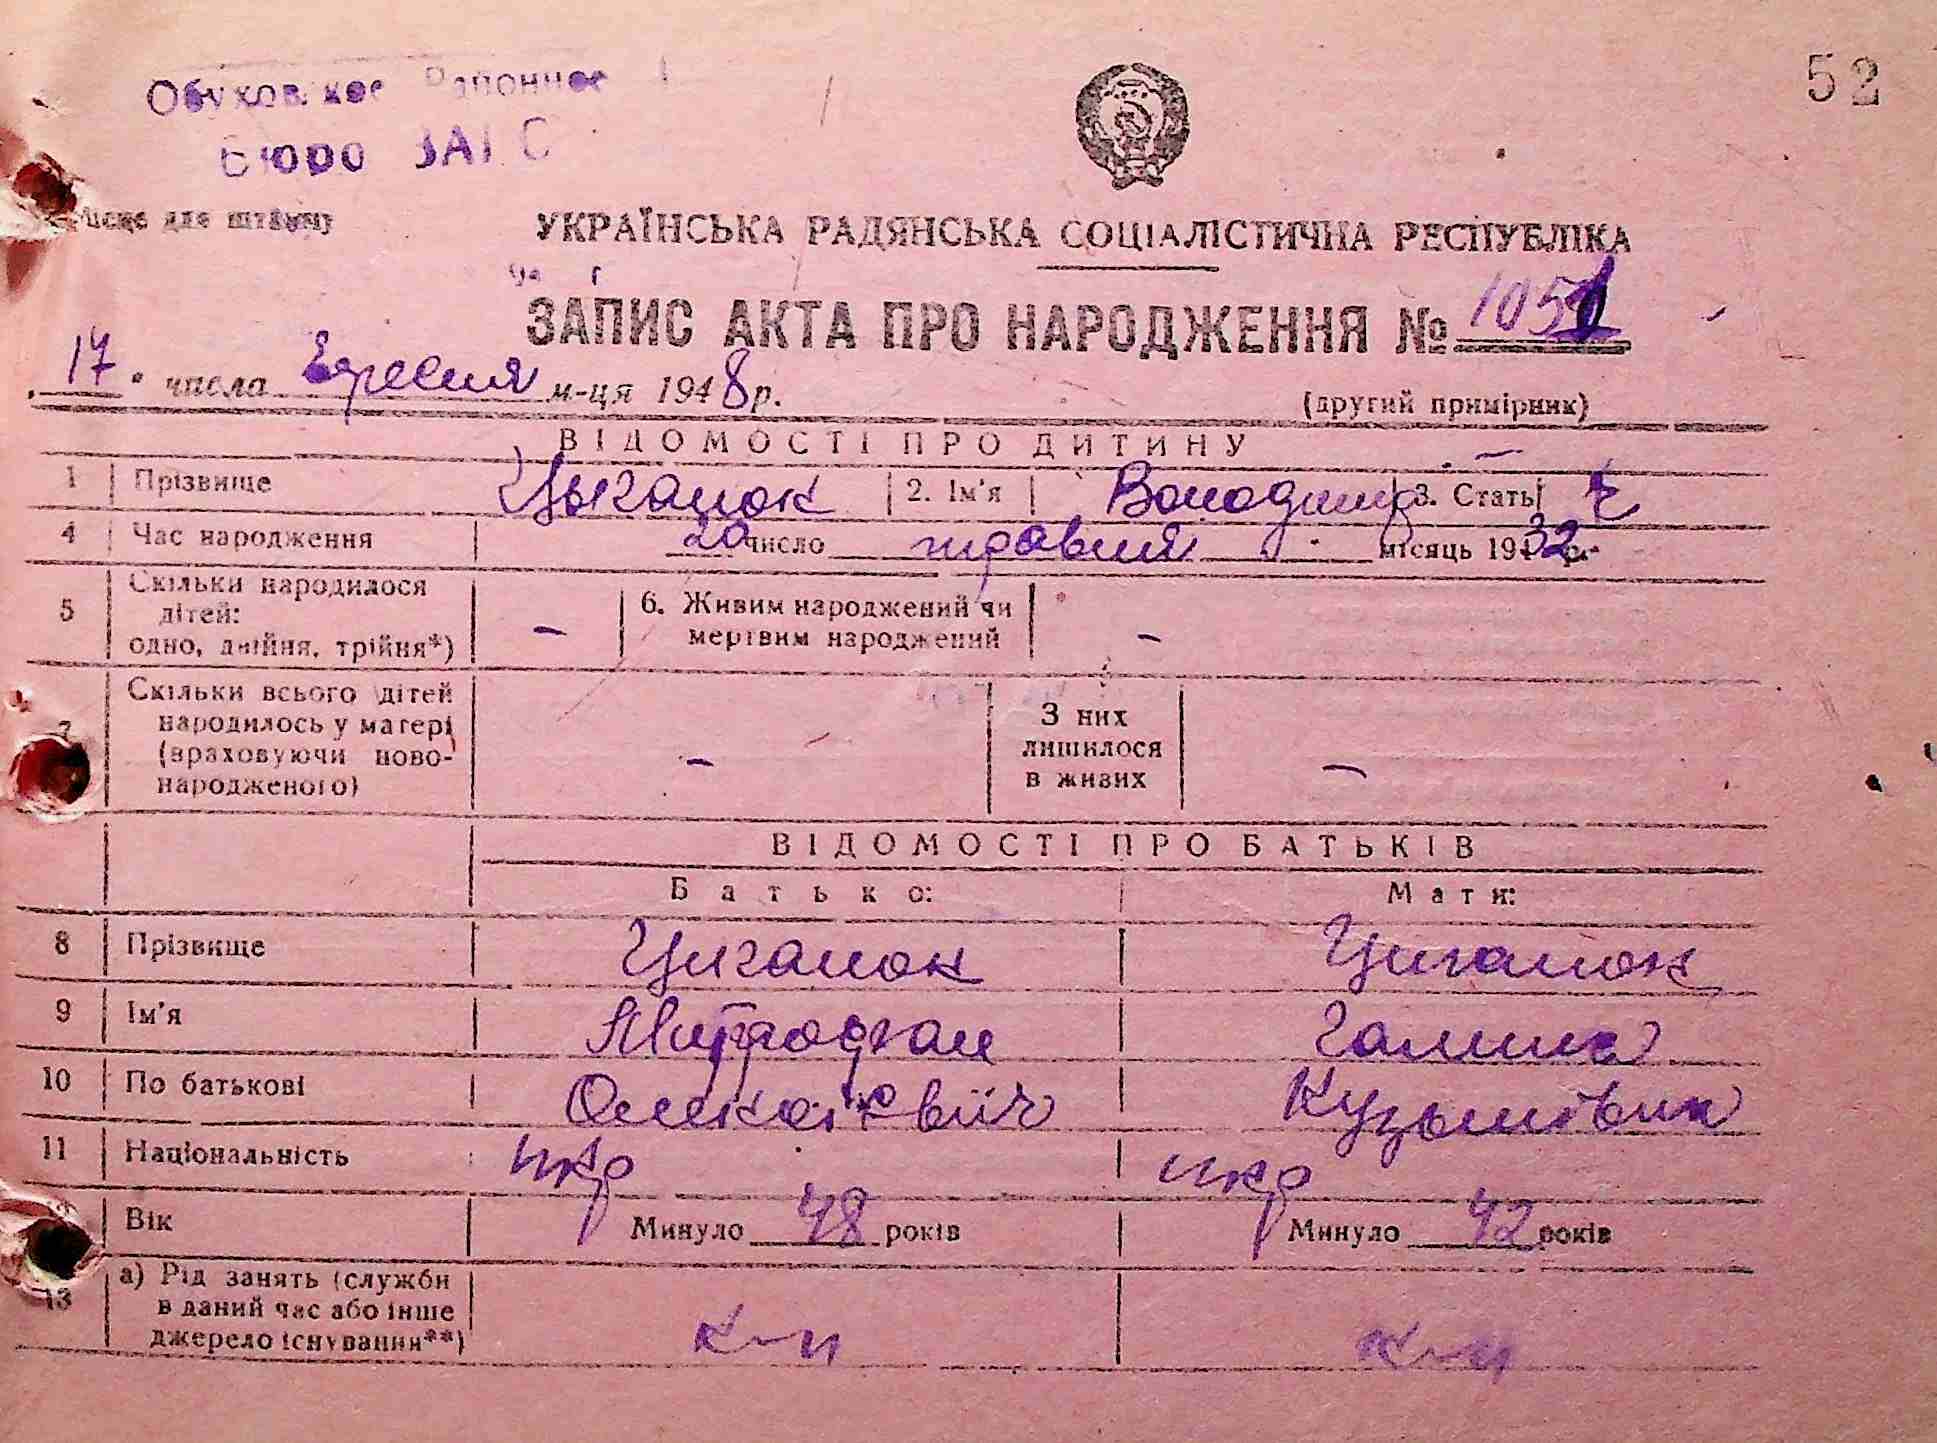 52
Обуховское Районное
Бюро ЗАГС
Місце для штампу
УКРАЇНСЬКА РАДЯНСЬКА СОЦІАЛІСТИЧНА РЕСПУБЛІКА
ЗАПИС АКТА ПРО НАРОДЖЕННЯ № 1051
„17" числа Вересня м-ця 1948 р.
(другий примірник)
ВІДОМОСТІ ПРО ДИТИНУ
1 Прізвище Цыганок 2. Ім'я Володимир 3. Стать ч
4 Час народження 20 число травня місяць 1932 р.
5 Скільки народилося дітей: одно, двійня, трійня*) – 6. Живим народжений чи мертвим народжений –
7 Скільки всього дітей народилось у матері (враховуючи новонародженого) – З них лишилося в живих –
ВІДОМОСТІ ПРО БАТЬКІВ
Батько: Мати:
8 Прізвище Циганок Циганок
9 Ім'я Митрофан Галина
10 По батькові Кузьмівна
11 Національність укр укр
Вік Минуло 48 років Минуло 42 років
13 а) Рід занять (служби в даний час або інше джерело існування**) к-и к-и